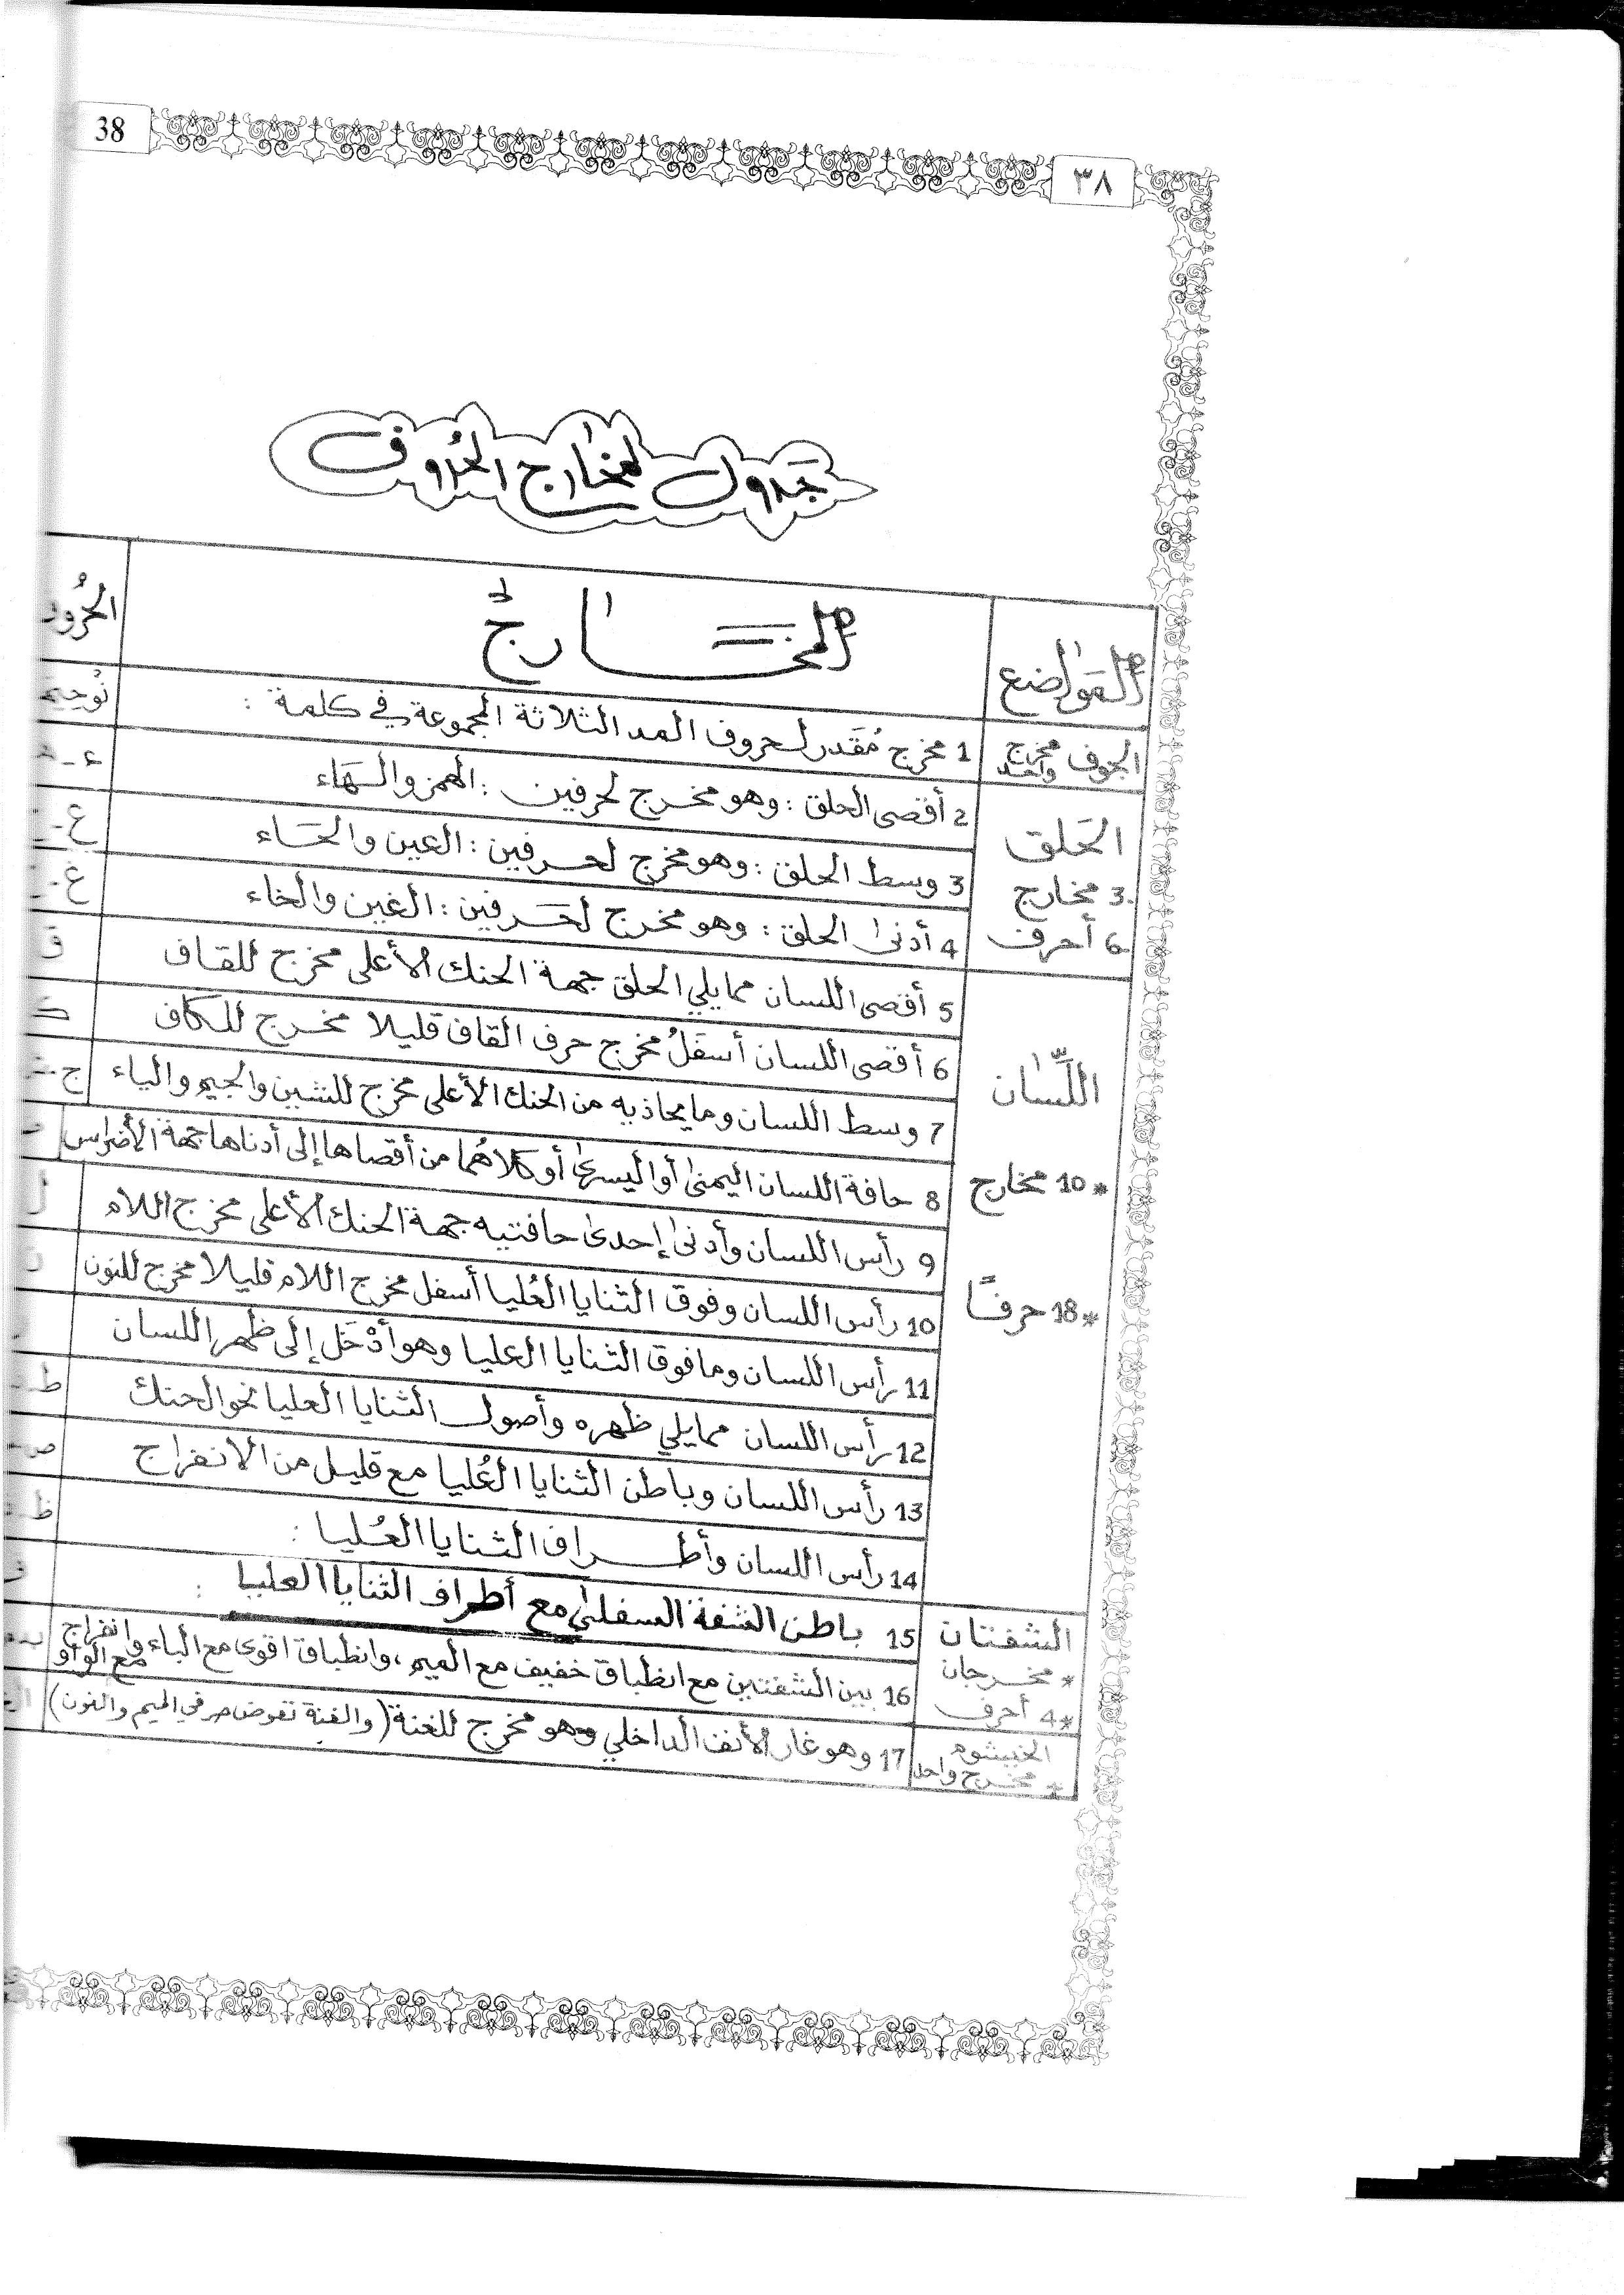 38
٣٨
جَدول لمخارج الحُروف
المواضع
المخارج
الجوف مخرج واحد
1 مخرج مُقَدر لحروف المد الثلاثة المجموعة في كلمة :
الحَلق
3 مخارج
6 أحرف
2 أقصى الحلق : وهو مخرج لحرفين : الهمز والهَاء
ء - ه
3 وسط الحلق : وهو مخرج لحرفين : العين والحَاء
ع -
4 أدنى الحلق : وهو مخرج لحَرفين : الغين والخاء
غ -
اللِّسَان
* 10 مخارج
* 18 حرفًا
5 أقصى اللسان مما يلي الحلق جهة الحنك الأعلى مخرج للقاف
ق
6 أقصى اللسان أسفَلُ مخرج حرف القاف قليلا مخرج للكاف
ك
7 وسط اللسان وما يحاذيه من الحنك الأعلى مخرج للشين والجيم والياء
ج
8 حافة اللسان اليمنى أو اليسرى أو كلاهُما من أقصاها إلى أدناها جهة الأضراس
9 رأس اللسان وأدنى إحدى حافتيه جهة الحنك الأعلى مخرج اللام
ل
10 رأس اللسان وفوق الثنايا العُليا أسفل مخرج اللام قليلا مخرج للنون
ن
11 رأس اللسان وما فوق الثنايا العليا وهو أدْخَل إلى ظهر اللسان
12 رأس اللسان مما يلي ظهره وأصول الثنايا العليا نحو الحنك
ط
13 رأس اللسان وباطن الثنايا العُليا مع قليل من الانفراج
ص
14 رأس اللسان وأطراف الثنايا العُليا :
ظ
الشفتان
* مخرجان
* 4 أحرف
15 باطن الشفة السفلى مع أطراف الثنايا العليا :
ف
16 بين الشفتين مع انطباق خفيف مع الميم ، وانطباق اقوى مع الباء وانفراج مع الواو
الخيشوم
* مخرج واحد
17 وهو غار الأنف الداخلي وهو مخرج للغنة ( والغنة تعوض حرفي الميم والنون )